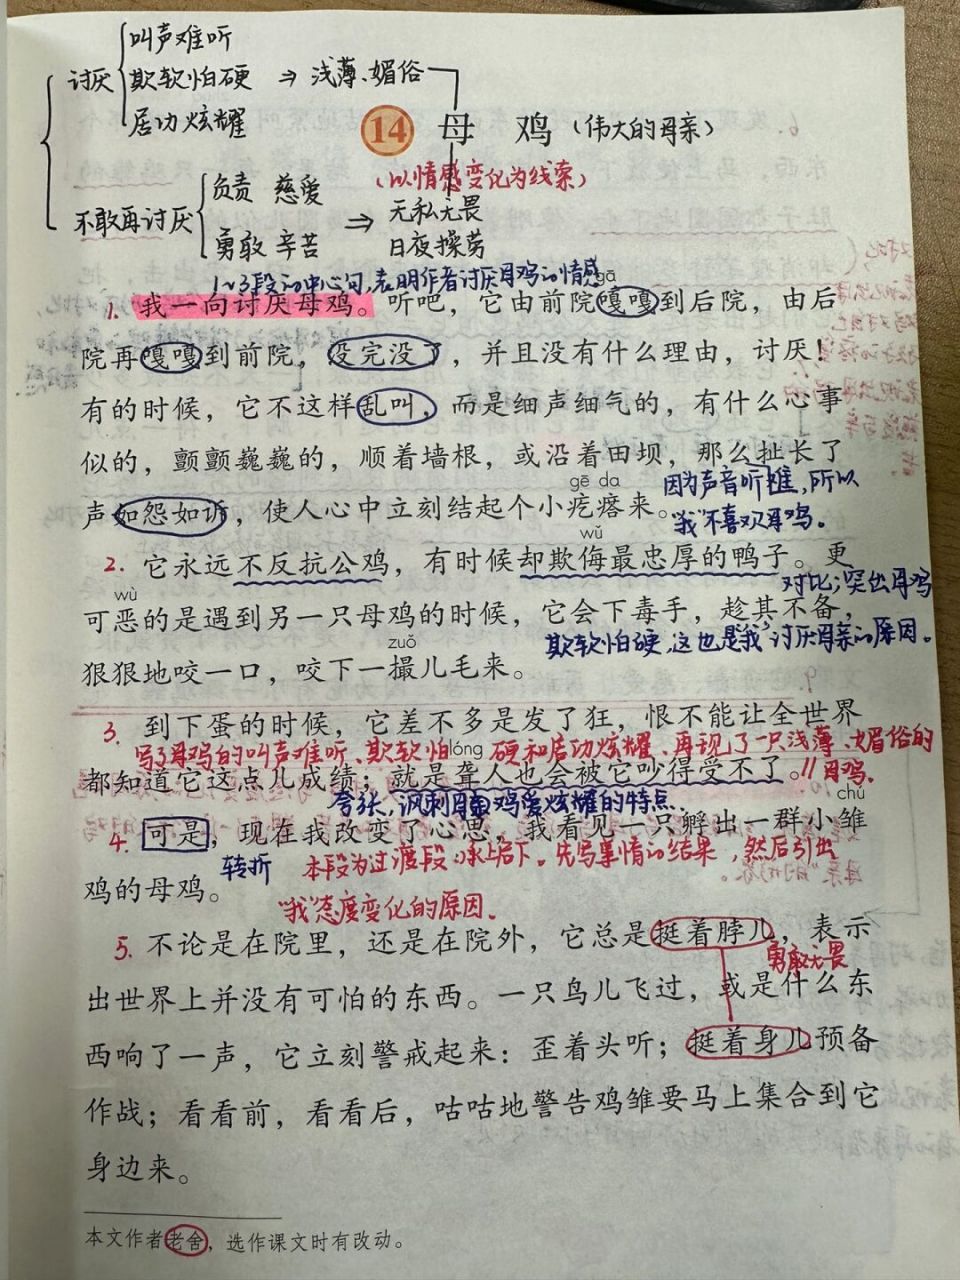 叫声难听
讨厌 欺软怕硬 ⇒ 浅薄、媚俗
居功炫耀
14 母 鸡 (伟大的母亲)
(以情感变化为线索)
负责 慈爱
不敢再讨厌 ⇒ 无私无畏
勇敢 辛苦 日夜操劳
1~3段的中心句,表明作者讨厌母鸡的情感
gā
1. 我一向讨厌母鸡。听吧,它由前院嘎嘎到后院,由后
院再嘎嘎到前院,没完没了,并且没有什么理由,讨厌!
有的时候,它不这样乱叫,而是细声细气的,有什么心事
似的,颤颤巍巍的,顺着墙根,或沿着田坝,那么扯长了
gē da
因为声音听难,所以
声如怨如诉,使人心中立刻结起个小疙瘩来。
“我”不喜欢母鸡。
wǔ
2. 它永远不反抗公鸡,有时候却欺侮最忠厚的鸭子。更
对比;突出母鸡
wù
可恶的是遇到另一只母鸡的时候,它会下毒手,趁其不备,
欺软怕硬,这也是“我”讨厌母亲的原因。
zuǒ
狠狠地咬一口,咬下一撮儿毛来。
3. 到下蛋的时候,它差不多是发了狂,恨不能让全世界
写了母鸡的叫声难听、欺软怕硬和居功炫耀、再现了一只浅薄、媚俗的
lóng
都知道它这点儿成绩;就是聋人也会被它吵得受不了。//
母鸡.
夸张,讽刺母鸡爱炫耀的特点
chú
4. 可是,现在我改变了心思,我看见一只孵出一群小雏
转折
本段为过渡段,承上启下。先写事情的结果,然后引出
鸡的母鸡。
“我”态度变化的原因.
5. 不论是在院里,还是在院外,它总是挺着脖儿,表示
勇敢无畏
出世界上并没有可怕的东西。一只鸟儿飞过,或是什么东
西响了一声,它立刻警戒起来:歪着头听;挺着身儿预备
作战;看看前,看看后,咕咕地警告鸡雏要马上集合到它
身边来。
本文作者老舍,选作课文时有改动。